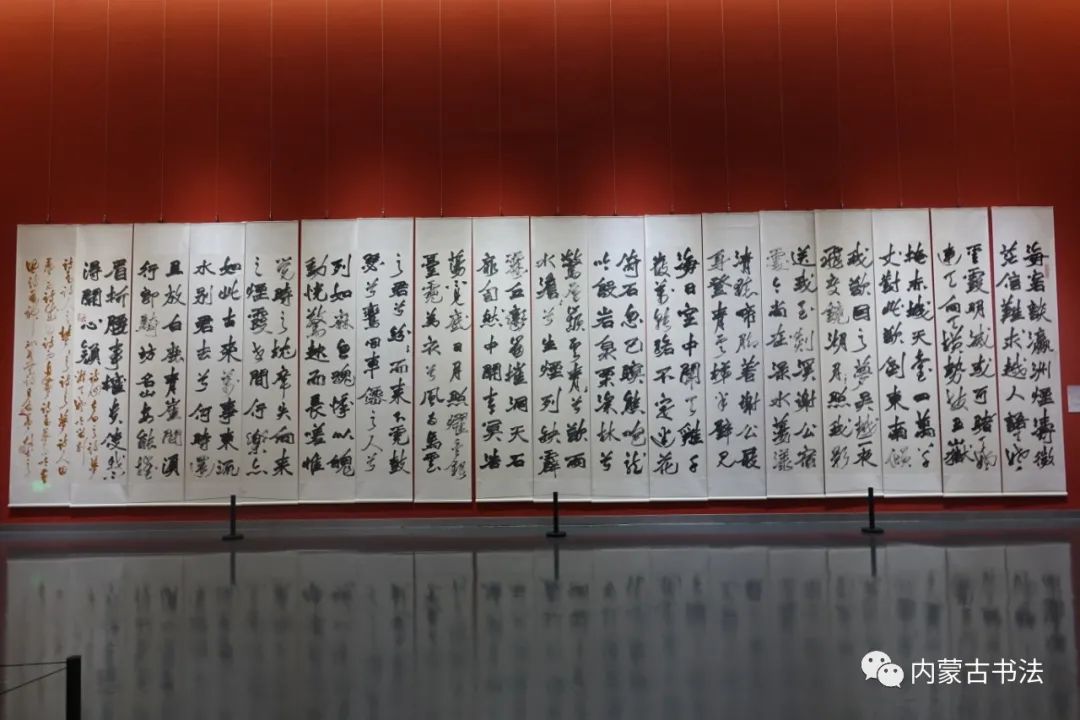 海客談瀛洲煙濤微
茫信難求越人語天姥
雲霞明滅或可睹天姥
連天向天橫勢拔五嶽
掩赤城天臺四萬八千
丈對此欲倒東南傾
我欲因之夢吳越一夜
飛度鏡湖月照我影
送我至剡溪謝公宿
處今尚在淥水蕩漾
清猿啼腳著謝公屐
身登青雲梯半壁見
海日空中聞天雞千
巖萬轉路不定迷花
倚石忽已暝熊咆龍
吟殷岩泉慄深林兮
驚層巔雲青青兮欲雨
水澹澹兮生煙列缺霹
靂丘巒崩摧洞天石
扉訇然中開青冥浩
蕩不見底日月照耀金銀
臺霓為衣兮風為馬雲
之君兮紛紛而來下虎鼓
瑟兮鸞回車仙之人兮
列如麻忽魂悸以魄
動怳驚起而長嗟惟
覺時之枕席失向來
之煙霞世間行樂亦
如此古來萬事東流
水別君去兮何時還
且放白鹿青崖間須
行即騎訪名山安能摧
眉折腰事權貴使我不
得開心顏
内蒙古书法